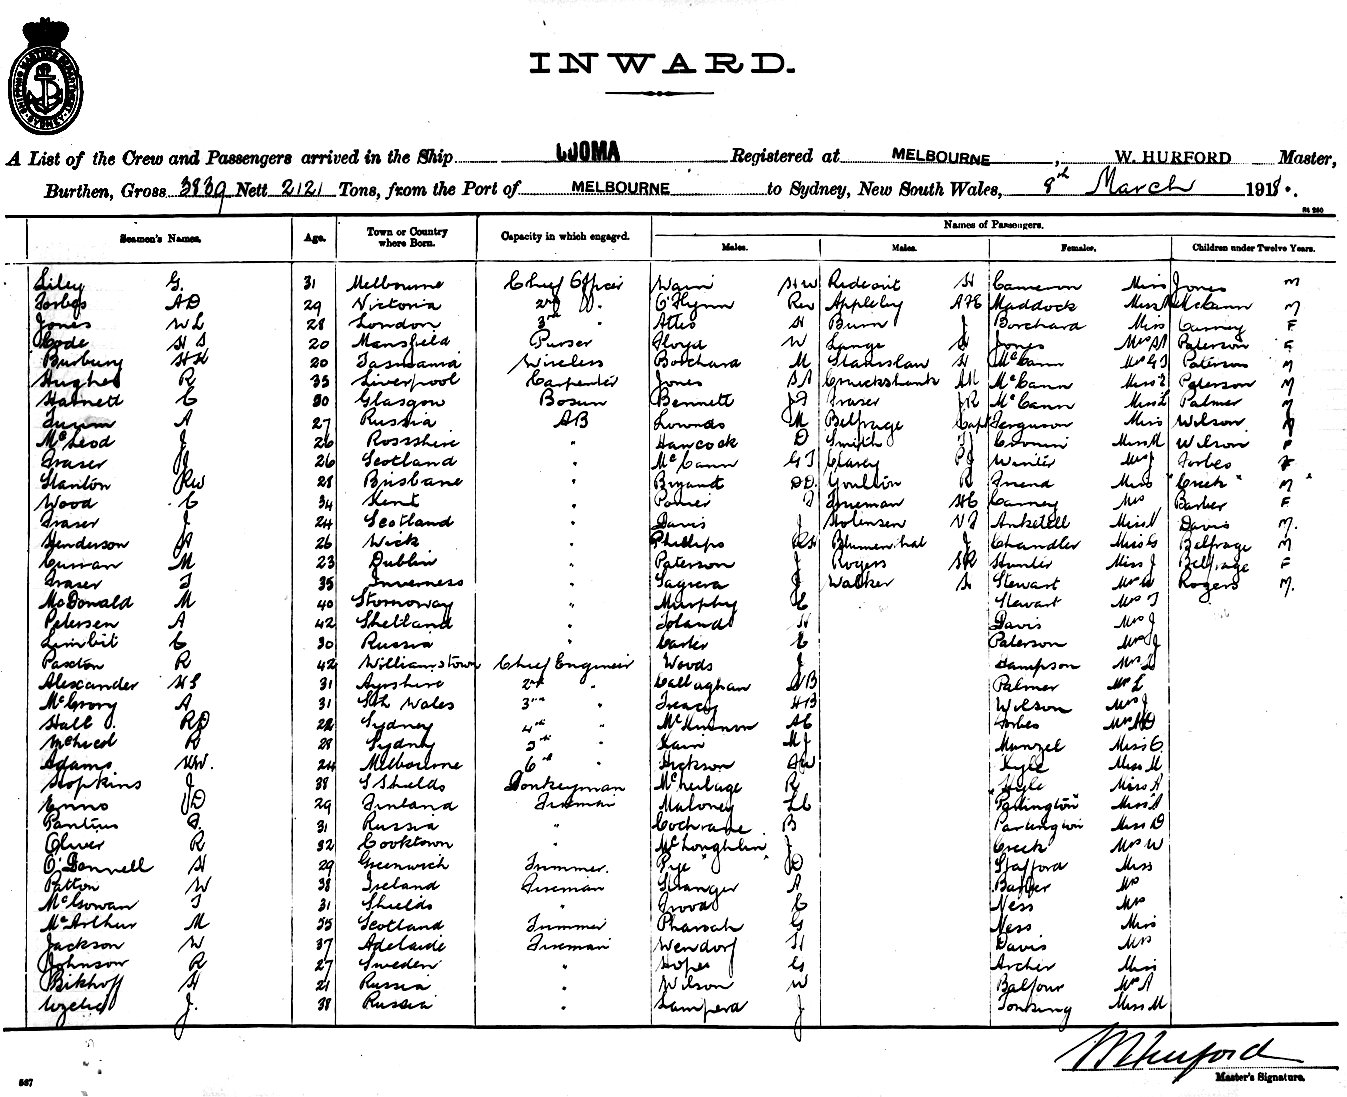 SHIPPING MASTERS DEPARTMENT SYDNEY
INWARD.
A List of the Crew and Passengers arrived in the Ship LOOMA Registered at MELBOURNE, W. HURFORD Master,
Burthen, Gross 3839 Nett 2121 Tons, from the Port of MELBOURNE to Sydney, New South Wales, 8th March 1918.
Names of Passengers.
Seamen's Names. Age. Town or Country where Born. Capacity in which engaged. Males. Males. Females. Children under Twelve Years.
Liley G. 31 Melbourne Chief Officer Wann Rideout H Cameron Miss Jones M
Forbes AD 29 Victoria 2nd " O'Flynn Rev Appleby AFE Maddock Miss McCann M
Jones WL 28 London 3rd " H Burn J Borchard Miss Carney F
Code HS 20 Mansfield Purser Floyd W Lange H Jones Mrs Paterson F
Burbury HH 20 Tasmania Wireless Borchard M Stanislaw H McCann Mrs GJ Paterson M
Hughes R 35 Liverpool Carpenter Jones Cruickshank McCann Miss Paterson M
Hannett C 30 Glasgow Bosun Bennett Fraser JR McCann Miss Palmer M
A 27 Russia AB Lownds M Belfrage Capt Ferguson Miss Wilson
McLeod J 26 Rossshire " Hancock D Smith Cronin Miss M Wilson F
Fraser J 26 Scotland " McCann GJ Clarey Winter Mrs J Forbes F
Stanton RW 28 Brisbane " Bryant DD. Friend Miss Creek " M "
Wood C 34 Kent " Trueman HC Carney Mrs Barker F
Fraser J 24 Scotland " Davis J Anketell Miss Davis M.
Henderson A 26 Wick " Phillips Blumenthal J Chandler Miss Belfrage M
Curran M 23 Dublin " Paterson J Rogers SR Hunter Miss J Belfrage F
Fraser J 35 Inverness " J Walker Stewart Mrs W Rogers M.
McDonald M 40 Stornoway " Murphy C Stewart Mrs J
Petersen A 42 Shetland " Toland H Davis Mrs J
Limbit C 30 Russia " Carter C Paterson Mrs J
Paxton R 42 Williamstown Chief Engineer Woods J Hampson Mrs
Alexander HS 31 Ayrshire 2nd " Callaghan Palmer Mrs L
McGrory A 31 Sth Wales 3rd " Treacy HB Wilson Mrs J
Hall RD 22 Sydney 4th " McKinnon AC Forbes Mrs AD
McNicol R 28 Sydney 5th " Kain MJ Munzel Miss C
Adams HW. 24 Melbourne 6th " Dickson Kyle Miss M
Hopkins J 38 S Shields Donkeyman R Kyle Miss A
Enno D 29 Finland Fireman Maloney Partington Miss
31 Russia " Cochrane B Partington Miss D
Oliver R 32 Cooktown " McLoughlin J Creek Mrs W
O'Donnell H 29 Greenwich Trimmer. Pye D Stafford Miss
Patton W 38 Ireland Fireman Stranger A Barker Mrs
McGowan J 31 Shields " C Ness Mrs
McArthur M 35 Scotland Trimmer G Ness Miss
Jackson W 37 Adelaide Fireman Wendorf H Davis Mrs
Johnson R 27 Sweden " Hopes G Archer Miss
Bikhoff H 21 Russia " Wilson W Balfour Mrs A
J. 38 Russia " Sampera J Tonking Miss M
W Hurford
Master's Signature.